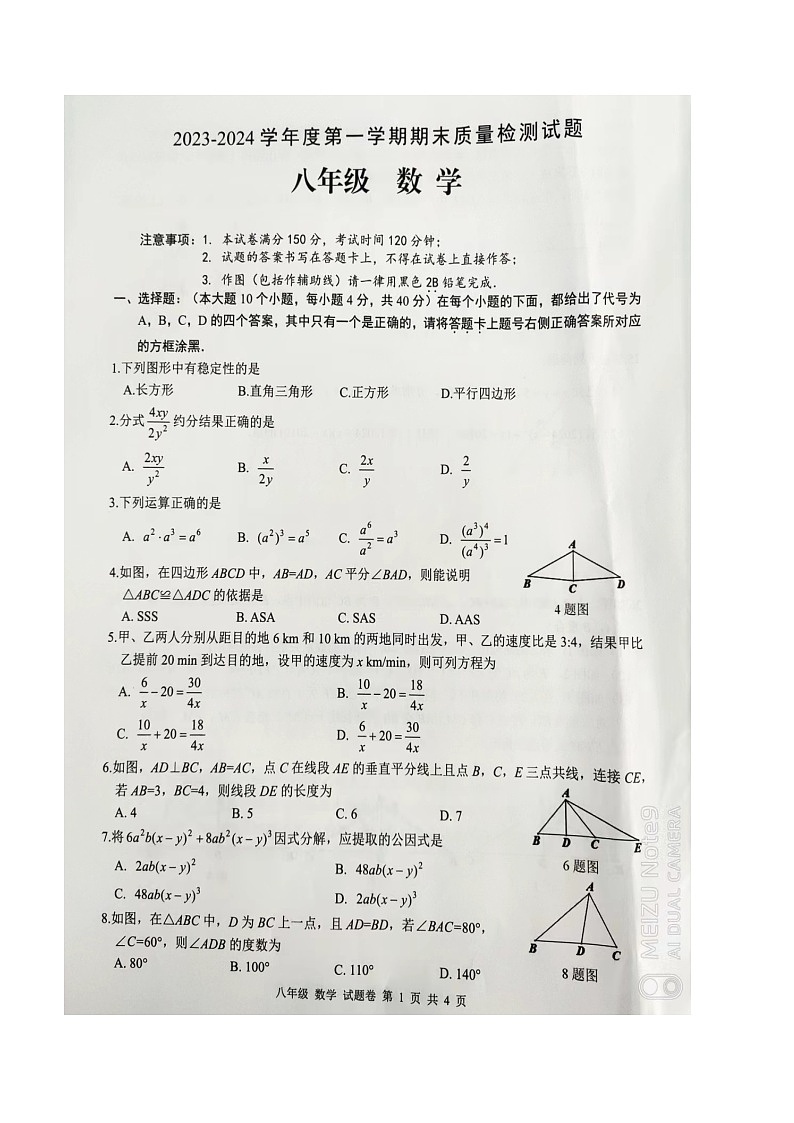 2023-2024 学年度第一学期期末质量检测试题
八年级 数 学
注意事项：1. 本试卷满分 150 分，考试时间 120 分钟；
2. 试题的答案书写在答题卡上，不得在试卷上直接作答；
3. 作图（包括作辅助线）请一律用黑色 2B 铅笔完成．
一、选择题：（本大题 10 个小题，每小题 4 分，共 40 分）在每个小题的下面，都给出了代号为
A，B，C，D 的四个答案，其中只有一个是正确的，请将答题卡上题号右侧正确答案所对应
的方框涂黑．
1.下列图形中有稳定性的是
A.长方形 B.直角三角形 C.正方形 D.平行四边形
2.分式 4xy/2y² 约分结果正确的是
A. 2xy/y² B. x/2y C. 2x/y D. 2/y
3.下列运算正确的是
A. a²·a³=a⁶ B. (a²)³=a⁵ C. a⁶/a²=a³ D. (a³)⁴/(a⁴)³=1
4.如图，在四边形 ABCD 中，AB=AD，AC 平分∠BAD，则能说明
△ABC≌△ADC 的依据是
A. SSS B. ASA C. SAS D. AAS
A
B C D
4 题图
5.甲、乙两人分别从距目的地 6 km 和 10 km 的两地同时出发，甲、乙的速度比是 3:4，结果甲比
乙提前 20 min 到达目的地，设甲的速度为 x km/min，则可列方程为
A. 6/x−20=30/4x B. 10/x−20=18/4x
C. 10/x+20=18/4x D. 6/x+20=30/4x
6.如图，AD⊥BC，AB=AC，点 C 在线段 AE 的垂直平分线上且点 B，C，E 三点共线，连接 CE，
若 AB=3，BC=4，则线段 DE 的长度为
A. 4 B. 5 C. 6 D. 7
A
B D C E
6 题图
7.将 6a²b(x−y)²+8ab²(x−y)³因式分解，应提取的公因式是
A. 2ab(x−y)² B. 48ab(x−y)²
C. 48ab(x−y)³ D. 2ab(x−y)³
8.如图，在△ABC 中，D 为 BC 上一点，且 AD=BD，若∠BAC=80°，
∠C=60°，则∠ADB 的度数为
A. 80° B. 100° C. 110° D. 140°
A
B D C
8 题图
八年级 数学 试题卷 第 1 页 共 4 页
MEIZU Note9
AI DUAL CAMERA